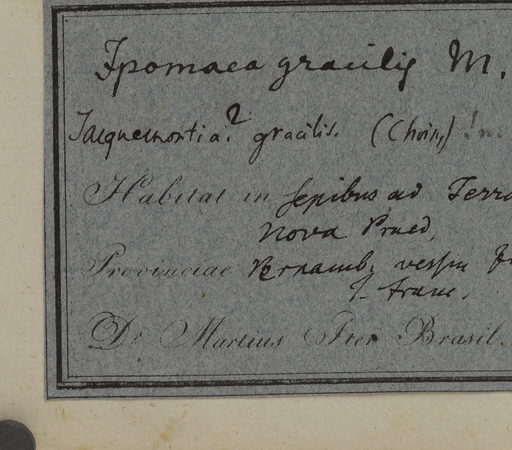 Ipomaea gracilis M.
Jacquemontia? gracilis. (Choisy)
Habitat in sepibus ad Terra
Nova Praed,
Provinciae Pernamb.
fl. franc.
Dr. Martius Iter Brasil.